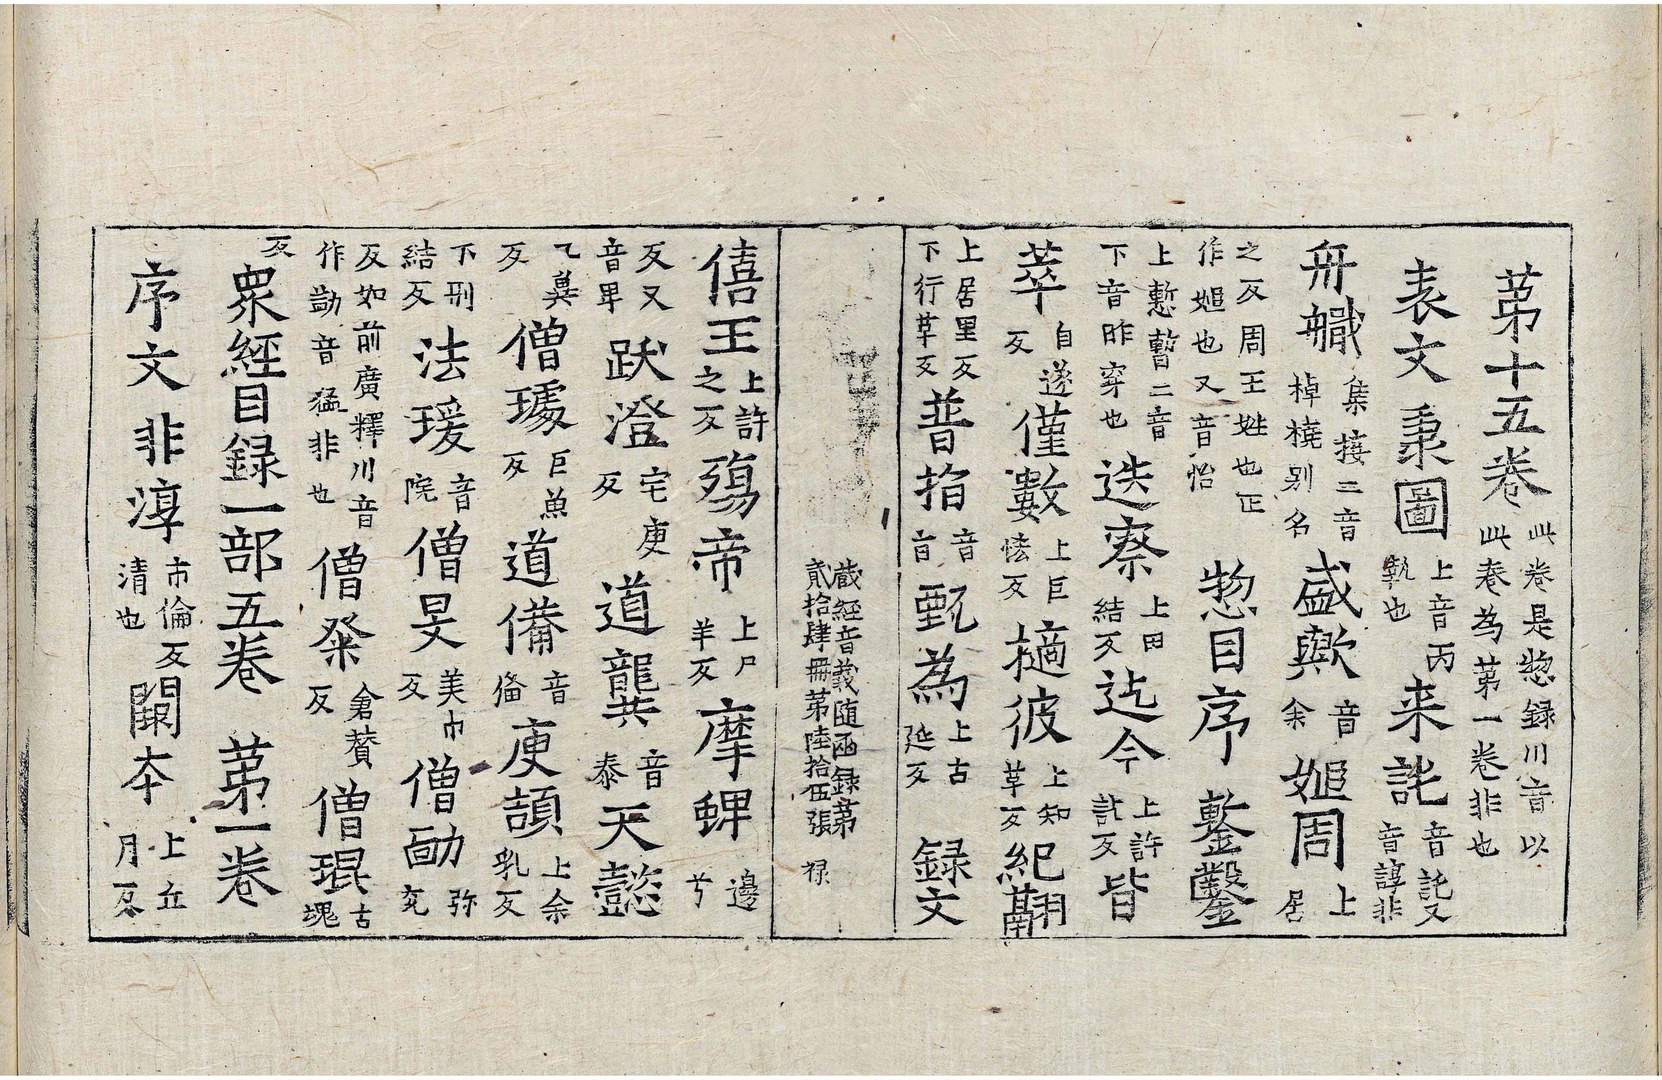 第十五卷此卷是惣録川音以此卷為第一卷非也
表文 秉圖上音丙執也来詫音託又音諄非
舟艥集接二音棹橈別名盛歟音余姖周上居
之反周王姓也正作姬也又音怡 惣目序 鏨鑿
上慙暫二音下音昨穿也迭寮上田結反迄今上許訖反皆
萃自遂反僅數上巨悋反擿彼上知革反紀
上居里反下行革反普指音旨甄為上古延反 録文
藏經音義随函録第貳拾肆冊第陸拾伍張 禄
僖王上許之反殤帝上尸羊反摩蜱邊兮
反又音卑 跃澄宅庚反 道龔音泰天懿
乁兾反 僧璩巨魚反 道備音俻庾頡上余乳反
下刑結反 法瑗音院僧旻美巾反 僧勔弥兖
反如前廣釋川音作勔音猛非也 僧粲倉賛反 僧琨古塊
反 眾經目録一部五卷 第一卷
序文 非淳市倫反清也 闕本上丘月反